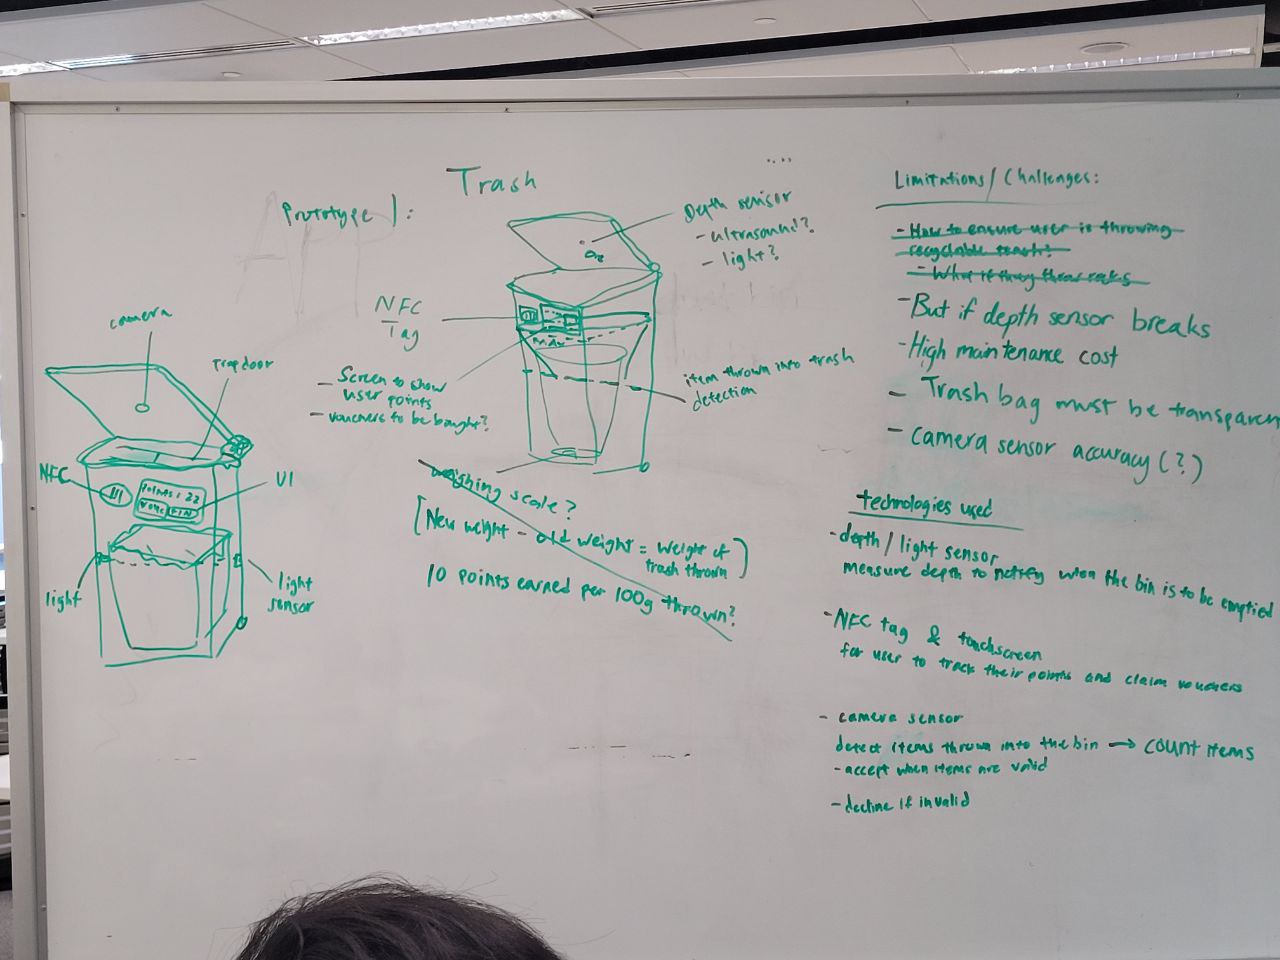 Trash
Prototype 1:
Depth sensor
- ultrasound?
- light?
NFC
Tag
- Screen to show
user points
- vouchers to be bought?
item thrown into trash
detection
weighing scale?
[New weight - old weight = weight of
trash thrown]
10 points earned per 100g thrown?
camera
Trapdoor
NFC
UI
POINTS: 22
light
light
sensor
Limitations/Challenges:
- How to ensure user is throwing
recyclable trash?
- What if they throw rocks
- But if depth sensor breaks
- High maintenance cost
- Trash bag must be transparen
- camera sensor accuracy (?)
technologies used
- depth / light sensor
measure depth to notify when the bin is to be emptied
- NFC tag & touchscreen
for user to track their points and claim vouchers
- camera sensor
detect items thrown into the bin → count items
- accept when items are valid
- decline if invalid